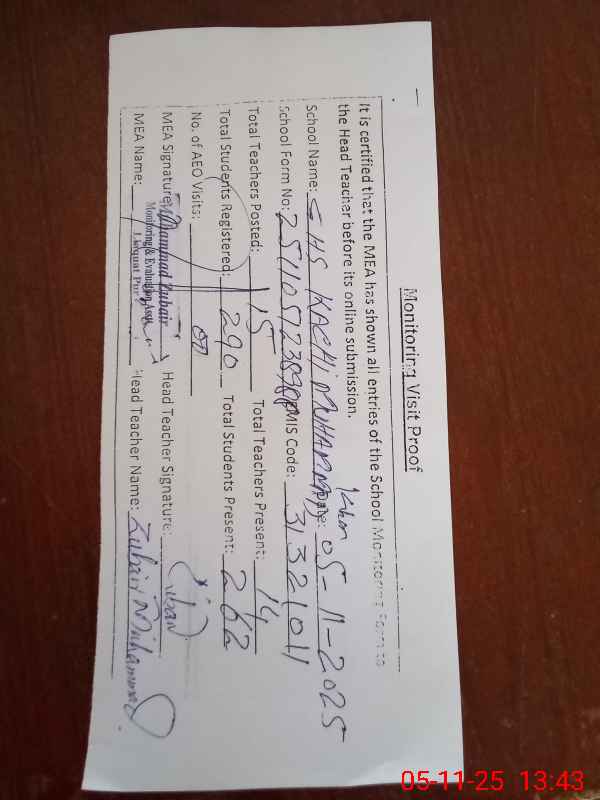 Monitoring Visit Proof
It is certified that the MEA has shown all entries of the School Monitoring Form to
the Head Teacher before its online submission.
School Name: GHS KACHI MUHAMMAD Khan Date: 05-11-2025
School Form No: EMIS Code: 31321011
Total Teachers Posted: 15 Total Teachers Present: 14
Total Students Registered: 290 Total Students Present: 262
No. of AEO Visits: 07
MEA Signature: Muhammad Zubair Head Teacher Signature:
Monitoring & Evaluation Asstt
MEA Name: Liaquat Pur Head Teacher Name: Zubair Muhammad
05-11-25 13:43